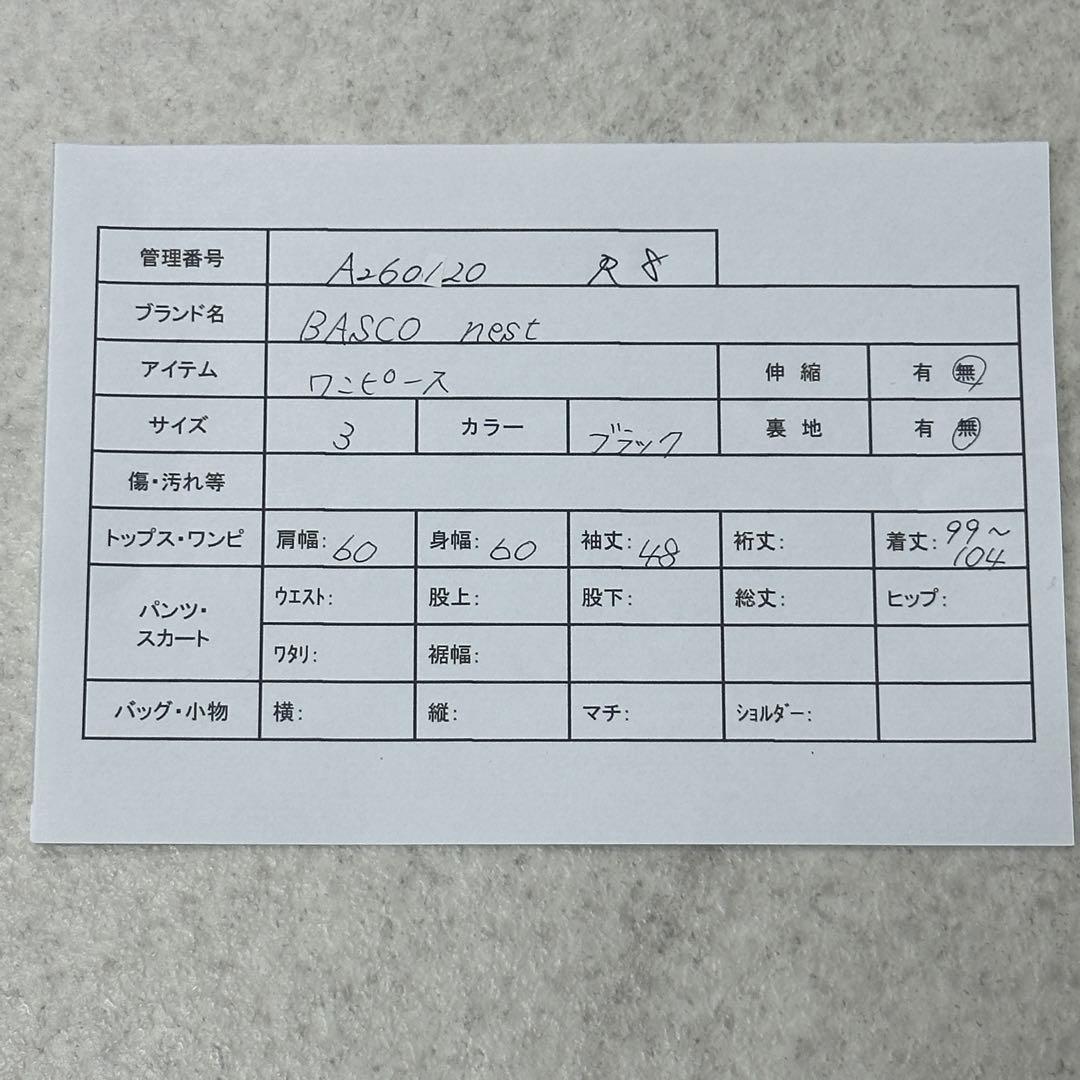 管理番号 A260120 R 8
ブランド名 BASCO nest
アイテム ワンピース 伸縮 有 無
サイズ 3 カラー ブラック 裏地 有 無
傷・汚れ等
トップス・ワンピ 肩幅: 60 身幅: 60 袖丈: 48 裄丈: 着丈: 99~104
パンツ・スカート ウエスト: 股上: 股下: 総丈: ヒップ:
ワタリ: 裾幅:
バッグ・小物 横: 縦: マチ: ショルダー: